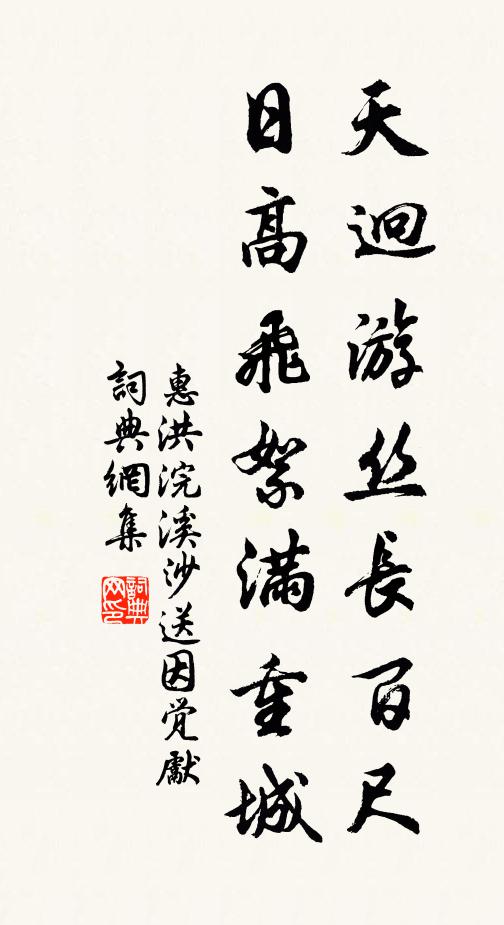 天迥游丝長百尺
日高飛絮滿重城
惠洪浣溪沙送因覚獻
詞典網集
詞典網印